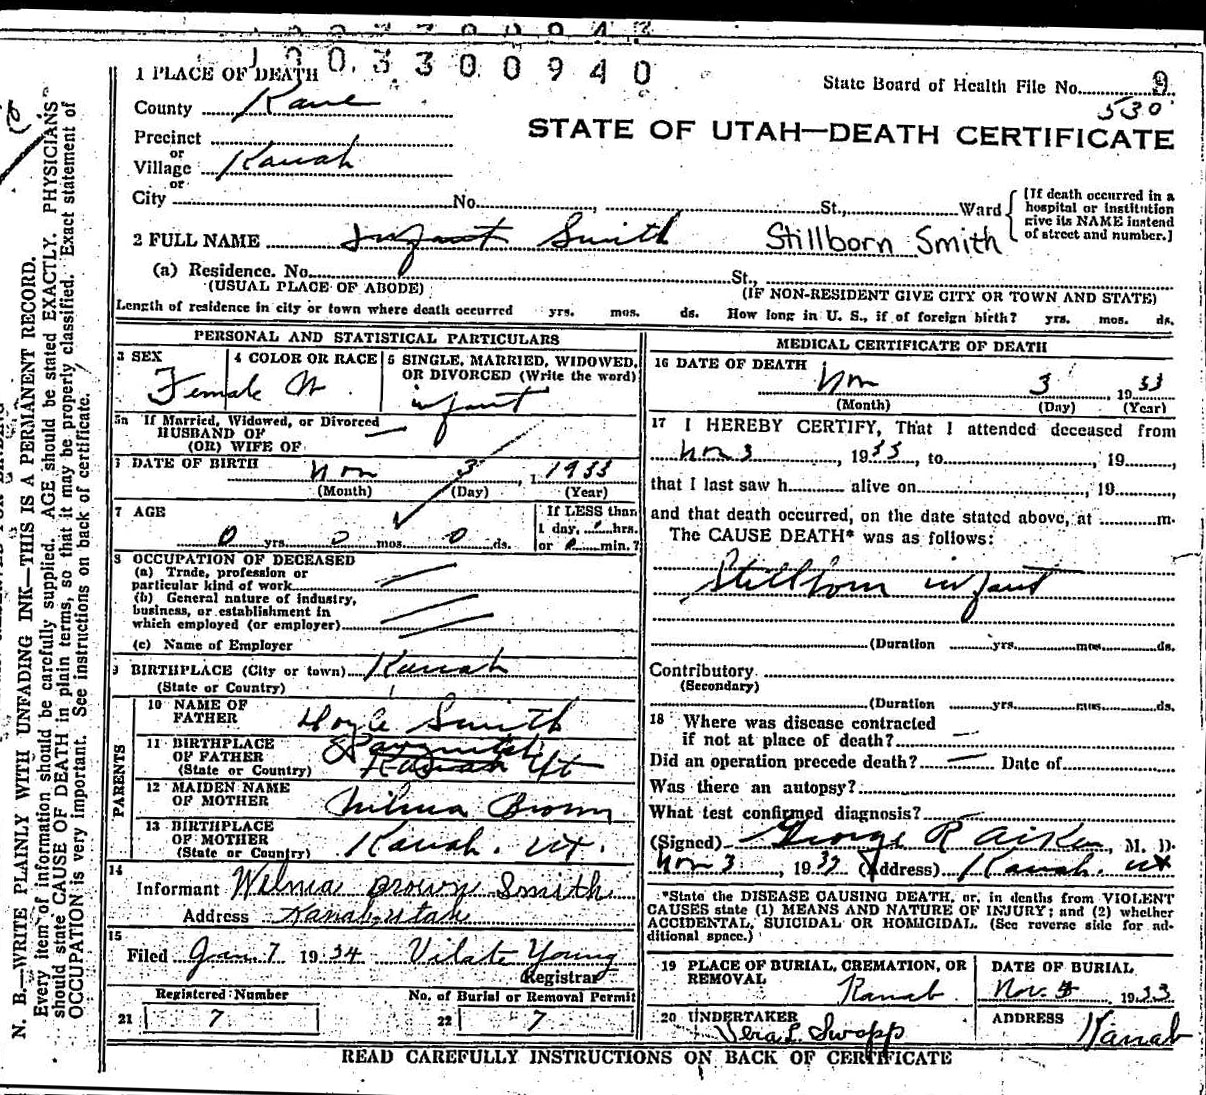 1003300940
1 PLACE OF DEATH
State Board of Health File No. 9
County Kane
530
STATE OF UTAH—DEATH CERTIFICATE
Precinct
or
Village Kanab
or
City No. , St., Ward
[If death occurred in a
hospital or institution
give its NAME instead
of street and number.]
2 FULL NAME Infant Smith Stillborn Smith
(a) Residence. No. St.,
(USUAL PLACE OF ABODE)
(IF NON-RESIDENT GIVE CITY OR TOWN AND STATE)
Length of residence in city or town where death occurred yrs. mos. ds. How long in U. S., if of foreign birth? yrs. mos. ds.
PERSONAL AND STATISTICAL PARTICULARS
3 SEX
Female
4 COLOR OR RACE
W
5 SINGLE, MARRIED, WIDOWED,
OR DIVORCED (Write the word)
infant
5a If Married, Widowed, or Divorced
HUSBAND OF
(OR) WIFE OF
6 DATE OF BIRTH Nov 3, 1933
(Month) (Day) (Year)
7 AGE
0 yrs. 0 mos. 0 ds.
If LESS than
1 day, hrs.
or min.?
8 OCCUPATION OF DECEASED
(a) Trade, profession or
particular kind of work
(b) General nature of industry,
business, or establishment in
which employed (or employer)
(c) Name of Employer
9 BIRTHPLACE (City or town) Kanab
(State or Country)
PARENTS
10 NAME OF
FATHER Hoyle Smith
11 BIRTHPLACE
OF FATHER Panguitch
(State or Country) Kanab Ut
12 MAIDEN NAME
OF MOTHER Wilma Brown
13 BIRTHPLACE
OF MOTHER Kanab. Ut.
(State or Country)
14
Informant Wilma Brown Smith
Address Kanab, Utah
15
Filed Jan 7 1934 Vilate Young
Registrar
Registered Number
21 7
No. of Burial or Removal Permit
22 7
MEDICAL CERTIFICATE OF DEATH
16 DATE OF DEATH
Nov 3 1933
(Month) (Day) (Year)
17 I HEREBY CERTIFY, That I attended deceased from
Nov 3, 1933, to , 19 ,
that I last saw h alive on , 19 ,
and that death occurred, on the date stated above, at m.
The CAUSE DEATH* was as follows:
Stillborn infant
(Duration yrs. mos. ds.
Contributory
(Secondary)
(Duration yrs. mos. ds.
18 Where was disease contracted
if not at place of death?
Did an operation precede death? Date of
Was there an autopsy?
What test confirmed diagnosis?
(Signed) George R Aiken, M. D.
Nov 3, 1933 (Address) Kanab. Ut
*State the DISEASE CAUSING DEATH, or, in deaths from VIOLENT
CAUSES state (1) MEANS AND NATURE OF INJURY; and (2) whether
ACCIDENTAL, SUICIDAL OR HOMICIDAL. (See reverse side for ad-
ditional space.)
19 PLACE OF BURIAL, CREMATION, OR
REMOVAL Kanab
DATE OF BURIAL
Nov. 1933
20 UNDERTAKER
Vera L. Swapp
ADDRESS
Kanab
READ CAREFULLY INSTRUCTIONS ON BACK OF CERTIFICATE
N. B.—WRITE PLAINLY WITH UNFADING INK—THIS IS A PERMANENT RECORD.
Every item of information should be carefully supplied. AGE should be stated EXACTLY. PHYSICIANS
should state CAUSE OF DEATH in plain terms, so that it may be properly classified. Exact statement of
OCCUPATION is very important. See instructions on back of certificate.